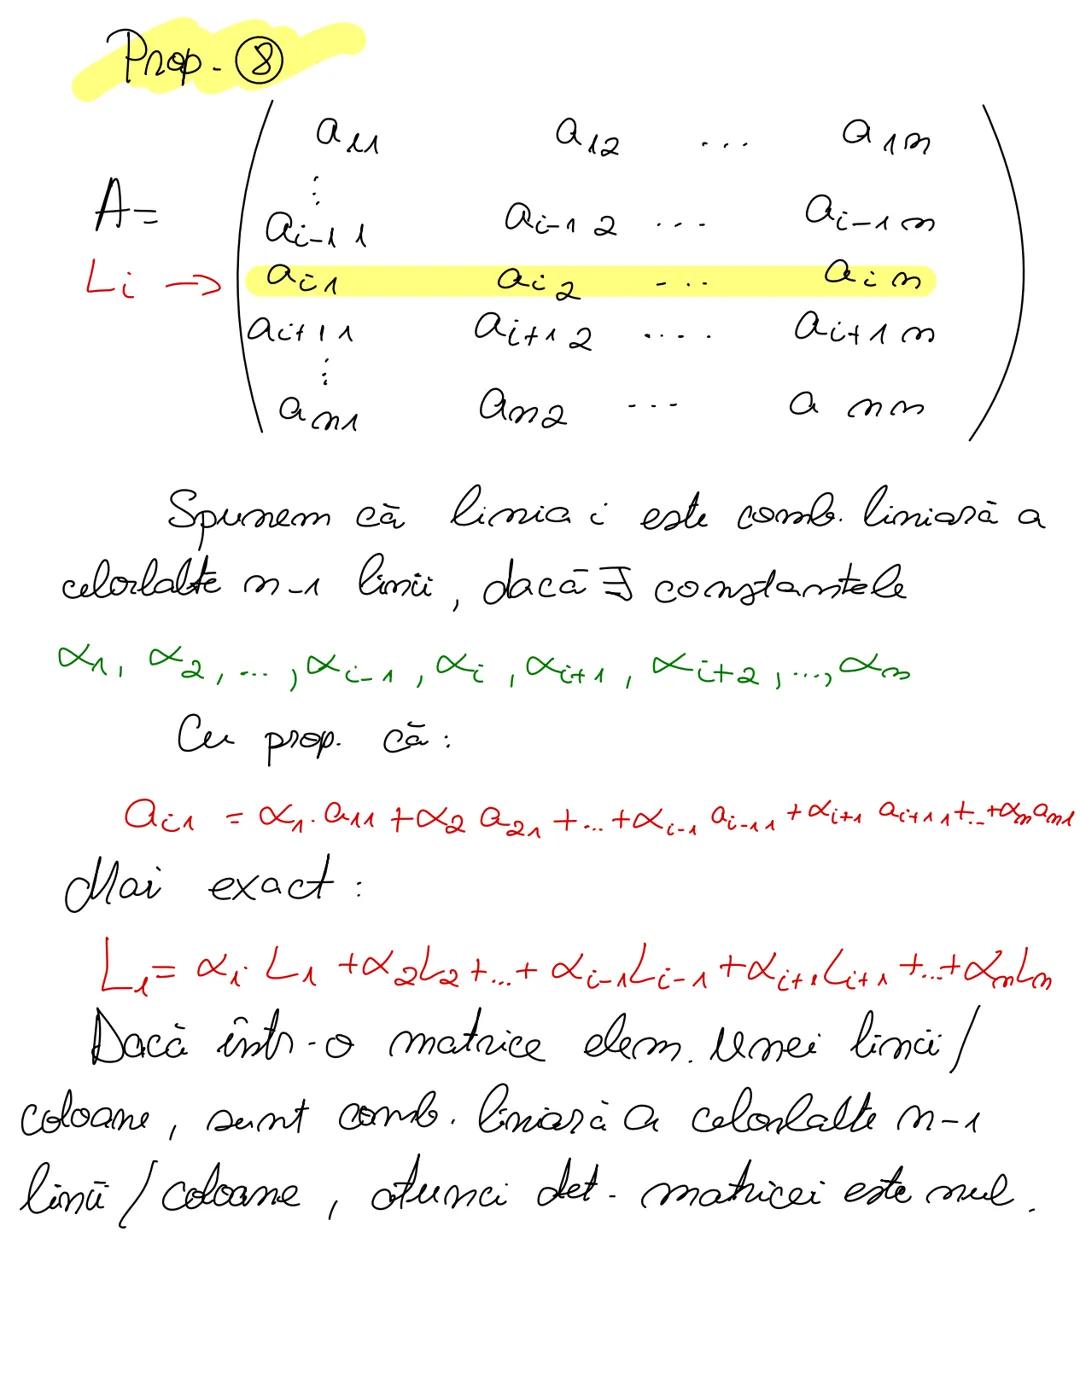 Prop. ⑧
a11 a12 ... a1n
⋮
A=
ai-11 ai-12 ... ai-1n
Li → ai1 ai2 ... ain
ai+11 ai+12 .... ai+1n
⋮
an1 an2 ... ann
Spunem că linia i este comb. liniară a
celorlalte n-1 linii, dacă ∃ constantele
α1, α2, ..., αi-1, αi, αi+1, αi+2, ..., αn
Cu prop. că:
ai1 = α1·a11 + α2 a21 + ... + αi-1 ai-11 + αi+1 ai+11 + ... + αn an1
Mai exact:
L1 = α1· L1 + α2L2 + ... + αi-1Li-1 + αi+1Li+1 + ... + αnLn
Dacă într-o matrice elem. unei linii/
coloane, sunt comb. liniară a celorlalte n-1
linii / coloane, atunci det. matricei este nul.